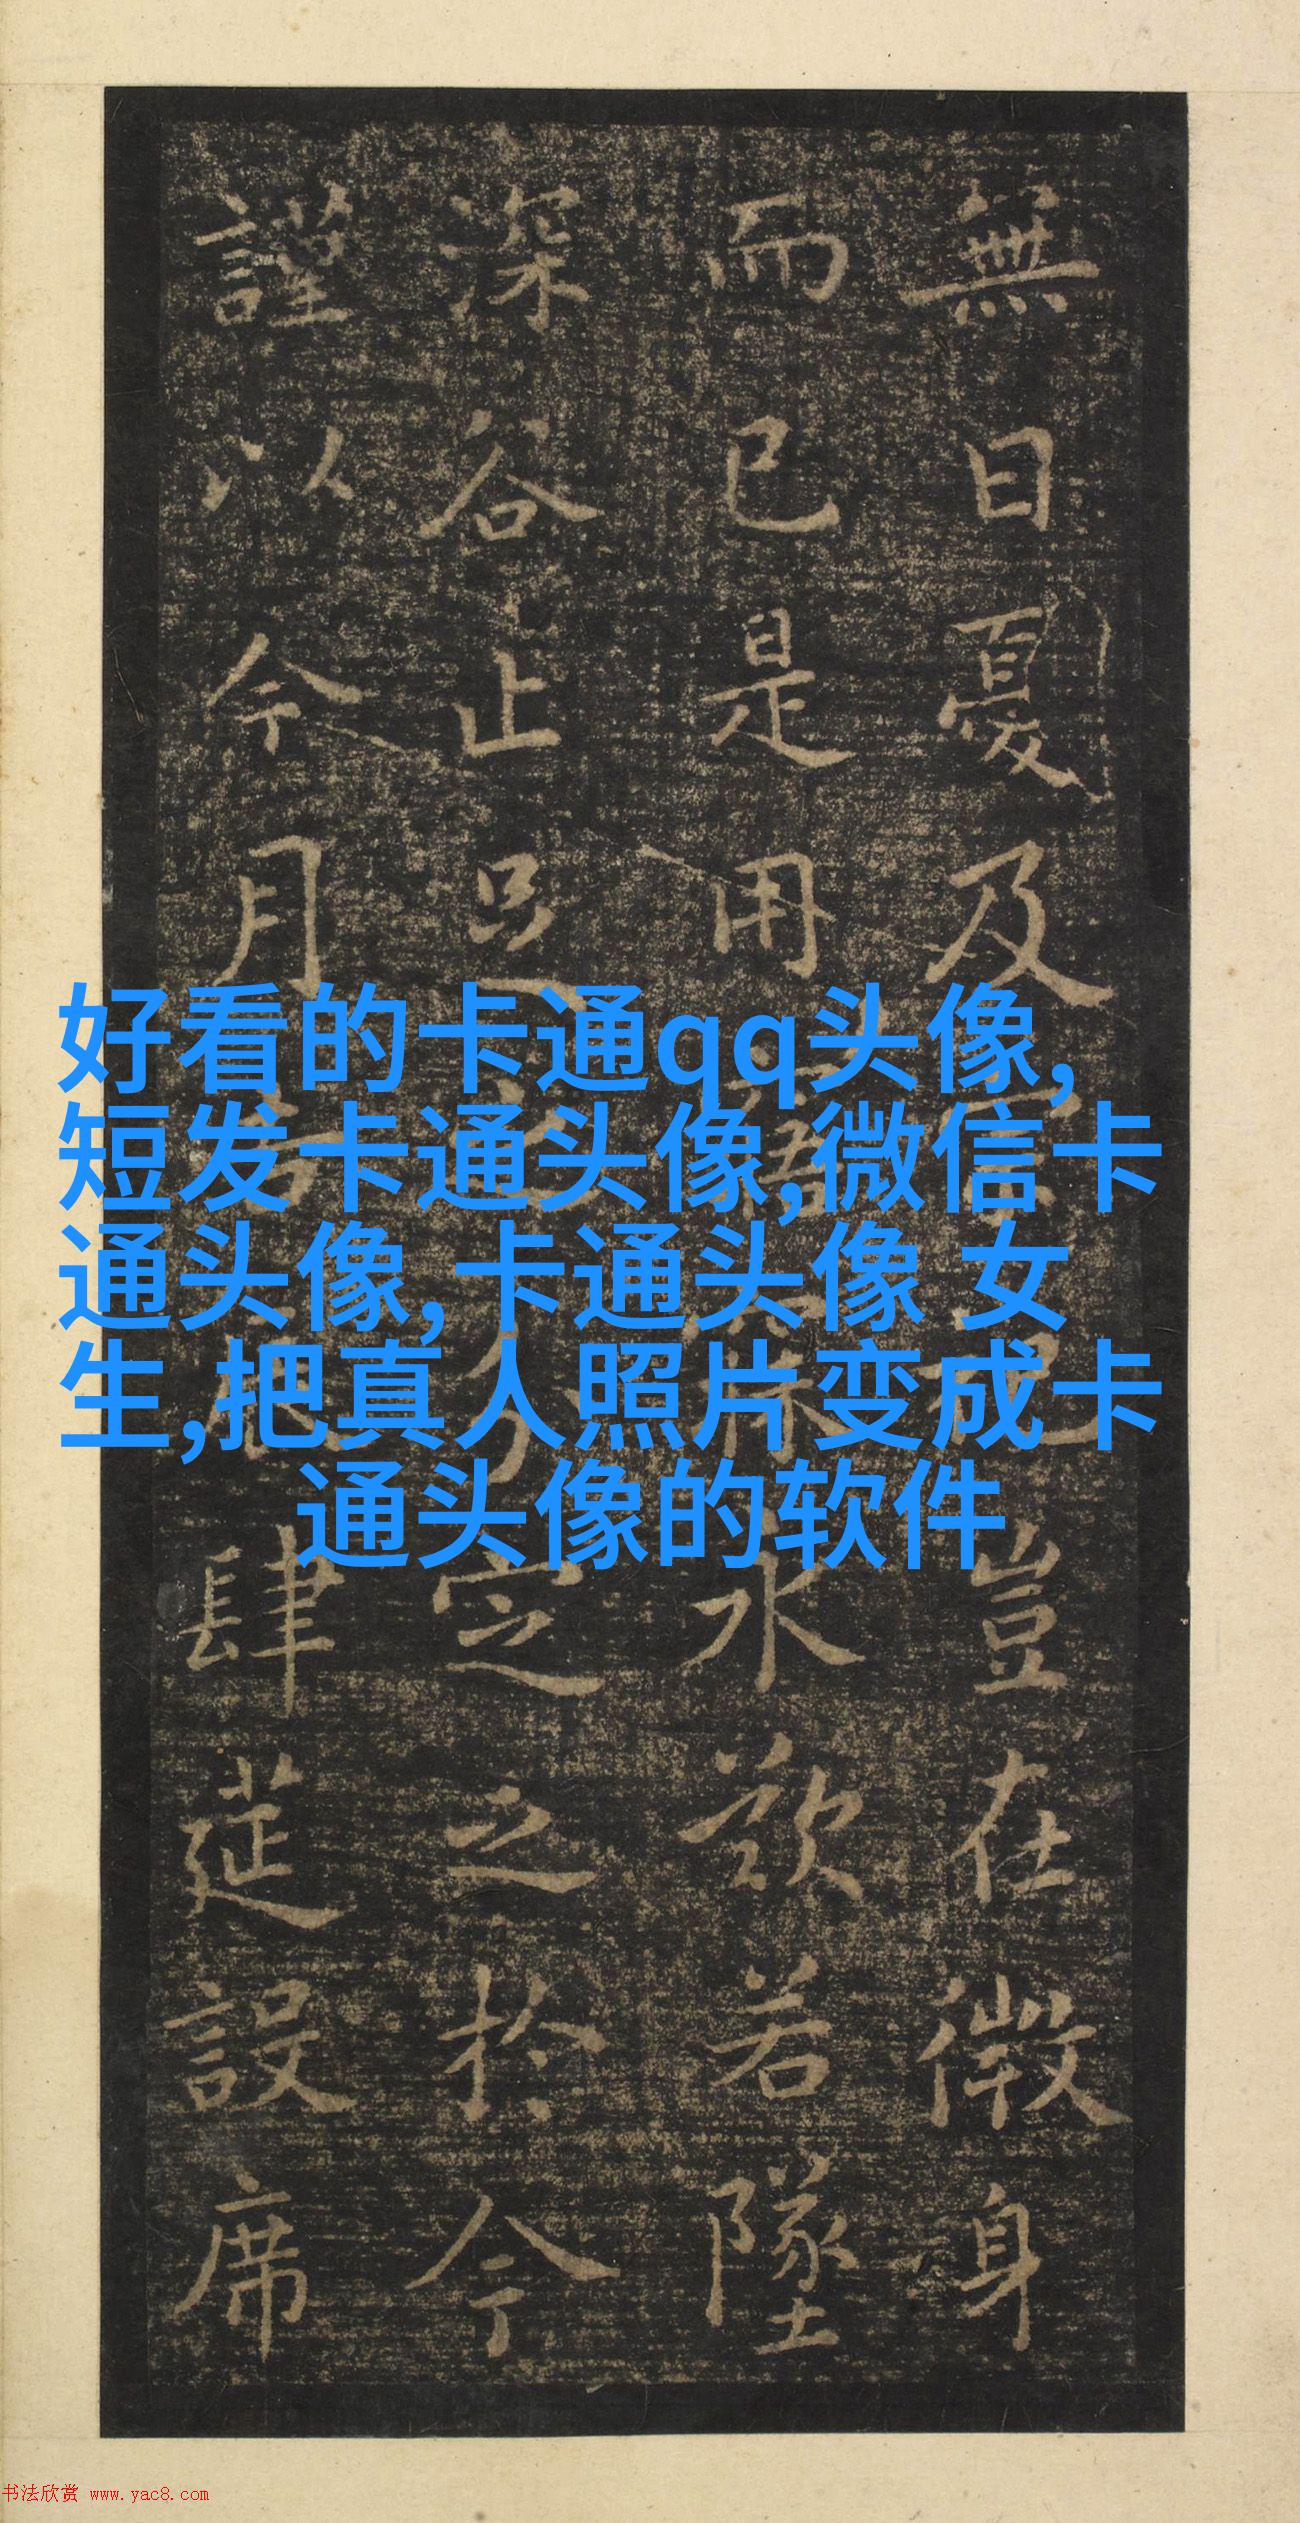 無日憂及宗祀豈在微身
而已是用寤寐永歎若墜
深谷止足之分定之於今
謹以今月吉辰肆筵設席
好看的卡通qq头像,
短发卡通头像,微信卡
通头像, 卡通头像 女
生,把真人照片变成卡
通头像的软件
书法欣赏 www.yac8.com